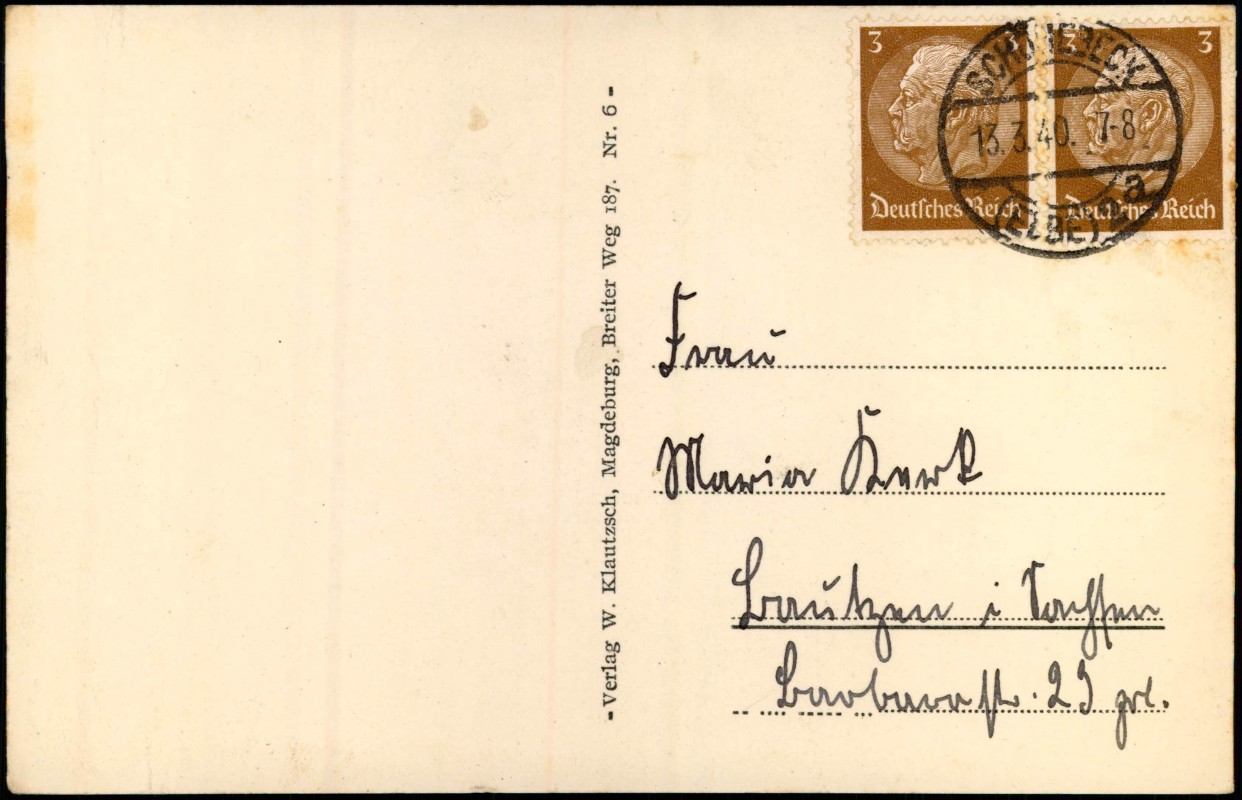 3 3
Deutsches Reich
3 3
Deutsches Reich
SCHÖNEBECK
13.3.40. 7-8
(ELBE) 2 a
-Verlag W. Klautzsch, Magdeburg, Breiter Weg 187. Nr. 6-
Frau
Maria
Bautzen i Sachsen
str. 23